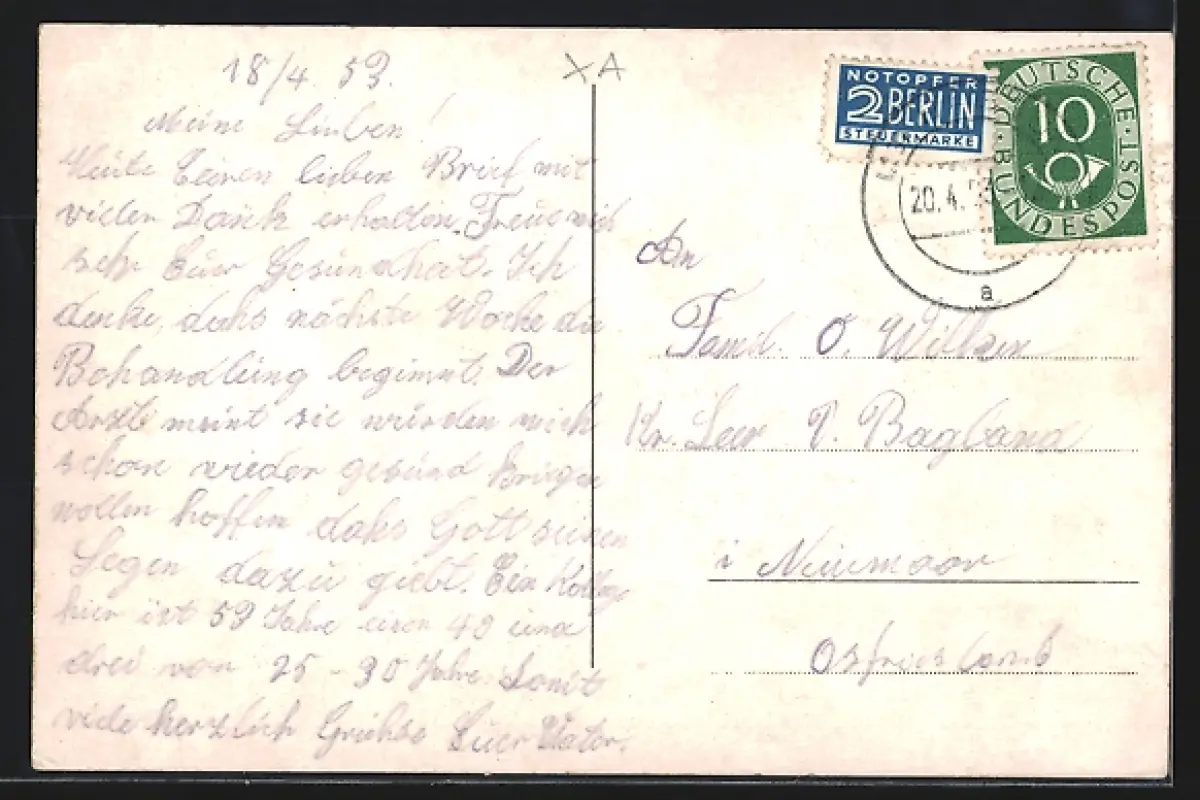 18/4. 53.
Meine Lieben!
Heute Euren lieben Brief mit
vielen Dank erhalten. Freue mich
sehr Eurer Gesundheit. Ich
denke, dahs nächste Woche die
Behandlung beginnt. Der
Arzt meint sie würden mich
schon wieder gesund kriegen
wollen hoffen dahs Gott seinen
Segen dazu giebt. Ein Kollege
hier ist 59 Jahre einer 49 und
drei von 25 - 30 Jahre. Somit
viele herzlich Grühse Euer Vater.
XA
NOTOPFER
2 BERLIN
STEUERMARKE
DEUTSCHE BUNDESPOST
10
20.4.53
a
An
Famil. O. Wilken
Kr. Leer P. Bagband
i Neuemoor
Ostfriesland